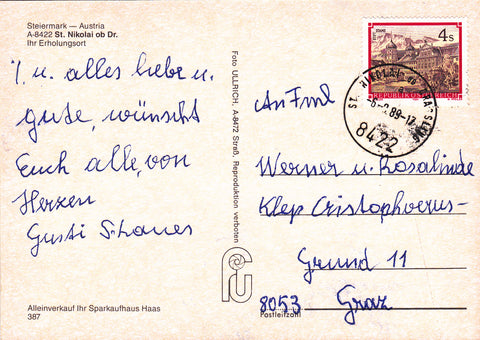 Steiermark — Austria
A-8422 St. Nikolai ob Dr.
Ihr Erholungsort
1. u. alles liebe u.
gute, wünscht
Euch alle, von
Herzen
Gusti
Alleinverkauf Ihr Sparkaufhaus Haas
387
Foto ULLRICH, A-8472 Straß, Reproduktion verboten
4s
REPUBLIK ÖSTERREICH
ST. NIKOLAI
89-17
8422
An Fml
Werner u. Rosalinde
Klep Cristophorus-
Grund 11
8053 Graz
Postleitzahl